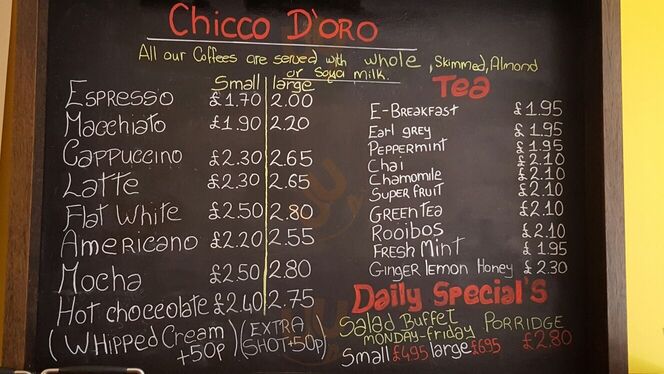 Chicco D'oro
All our Coffees are served with whole, Skimmed, Almond
or Soya milk.
Small large
Espresso £1.70 2.00
Macchiato £1.90 2.20
Cappuccino £2.30 2.65
Latte £2.30 2.65
Flat White £2.50 2.80
Americano £2.20 2.55
Mocha £2.50 2.80
Hot choccolate £2.40 2.75
(Whipped Cream +50p) (EXTRA SHOT+50p)
Tea
E-Breakfast £1.95
Earl grey £1.95
Peppermint £1.95
Chai £2.10
Chamomile £2.10
Super fruit £2.10
Green Tea £2.10
Rooibos £2.10
Fresh Mint £1.95
Ginger lemon Honey £2.30
Daily Special's
Salad Buffet
MONDAY-FRIDAY
Small £4.95 large £6.95
PORRIDGE
£2.80